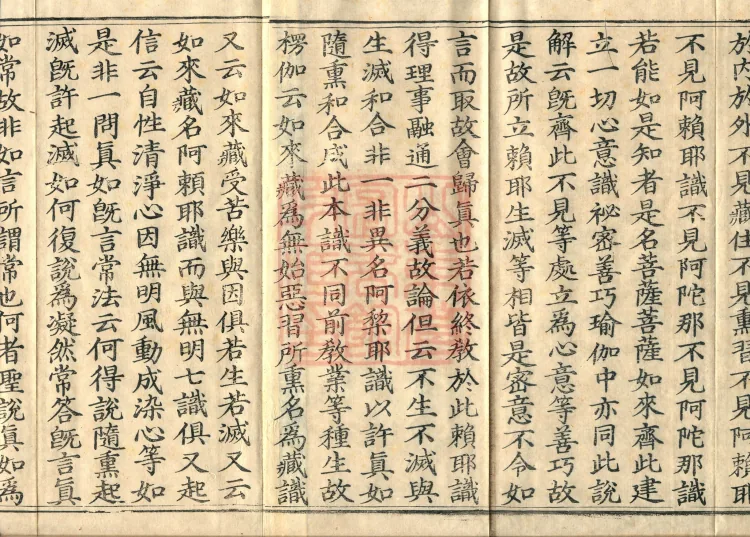 於內於外不見藏住不見熏習不見阿賴耶
不見阿賴耶識不見阿陀那不見阿陀那識
若能如是知者是名菩薩菩薩如來齊此建
立一切心意識祕密善巧瑜伽中亦同此說
解云既齊此不見等處立為心意等善巧故
是故所立賴耶生滅等相皆是密意不令如
言而取故會歸眞也若依終教於此賴耶識
得理事融通二分義故論但云不生不滅與
生滅和合非一非異名阿棃耶識以許眞如
隨熏和合成此本識不同前教業等種生故
楞伽云如來藏為無始惡習所熏名為藏識
又云如來藏受苦樂與因俱若生若滅又云
如來藏名阿賴耶識而與無明七識俱又起
信云自性清淨心因無明風動成染心等如
是非一問眞如既言常法云何得說隨熏起
滅既許起滅如何復說為凝然常答既言眞
如常故非如言所謂常也何者聖說眞如為